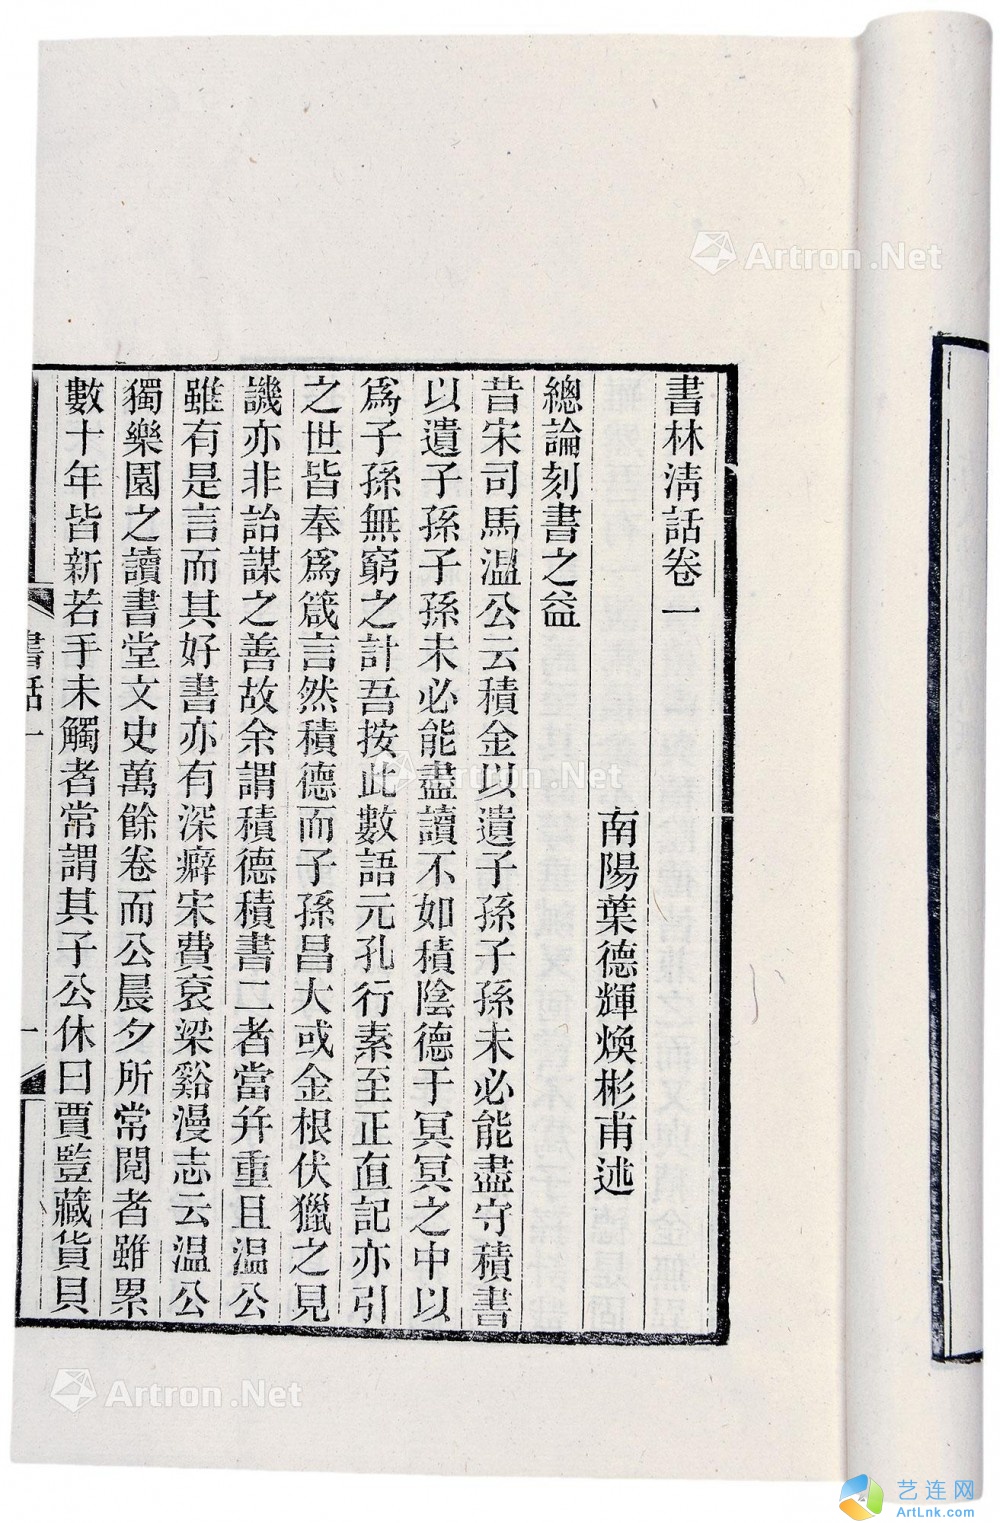 書林清話卷一
南陽葉德輝煥彬甫述
總論刻書之益
昔宋司馬溫公云積金以遺子孫子孫未必能盡守積書
以遺子孫子孫未必能盡讀不如積陰德于冥冥之中以
爲子孫無窮之計吾按此數語元孔行素至正直記亦引
之世皆奉爲箴言然積德而子孫昌大或金根伏獵之見
譏亦非詒謀之善故余謂積德積書二者當幷重且溫公
雖有是言而其好書亦有深癖宋費袞梁谿漫志云溫公
獨樂園之讀書堂文史萬餘卷而公晨夕所常閱者雖累
數十年皆新若手未觸者常謂其子公休曰賈豎藏貨貝
書話一
一
Artron.Net
Artron.Net
Artron.Net
艺连网
ArtLnk.com